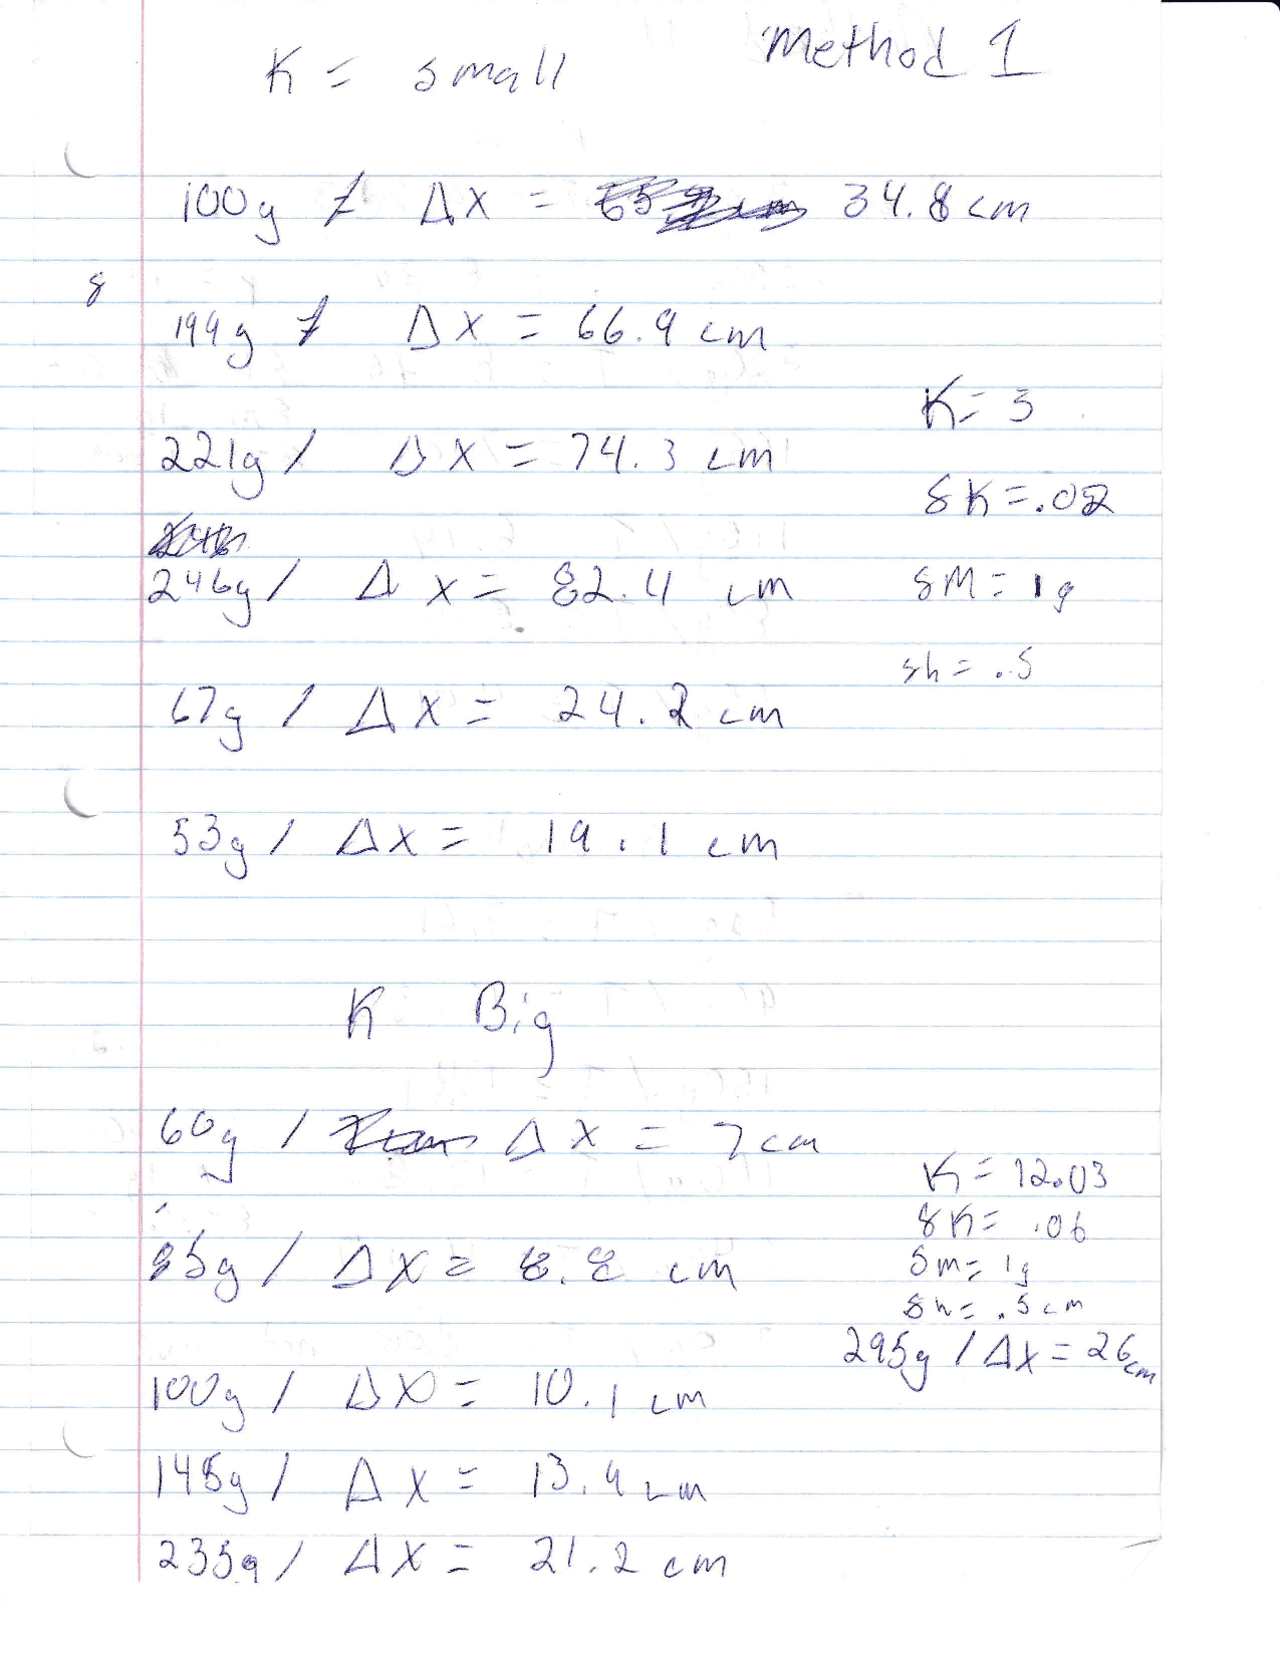 Method 1
K = small
100g / Δx = 34.8 cm
199g / Δx = 66.9 cm
K = 3
221g / Δx = 74.3 cm
δK = .02
246g / Δx = 82.4 cm
δM = 1g
δh = .5
67g / Δx = 24.2 cm
53g / Δx = 19.1 cm
K Big
60g / Δx = 7 cm
K = 12.03
δK = .06
85g / Δx = 8.8 cm
δm = 1g
δh = .5 cm
295g / Δx = 26 cm
100g / Δx = 10.1 cm
145g / Δx = 13.9 cm
235g / Δx = 21.2 cm